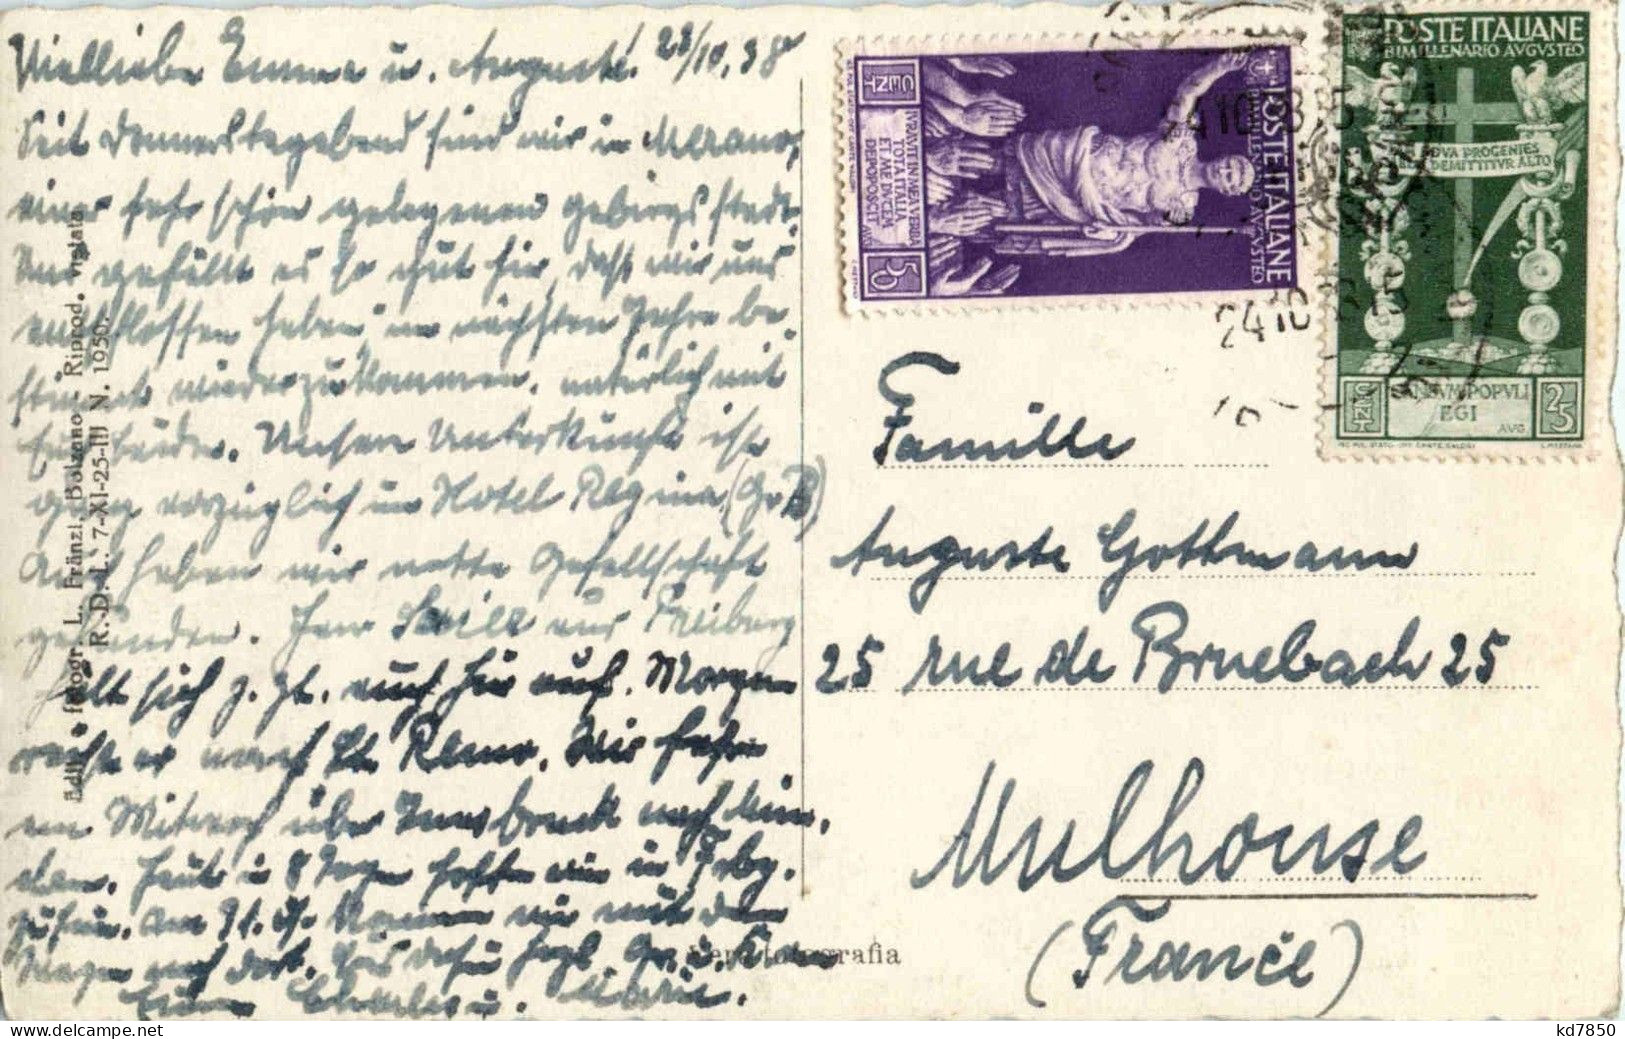 Vielliebe Emma u. Auguste! 23/10.38
Seit Donnerstagabend sind wir in Merano,
einer sehr schön gelegenen Gebirgsstadt.
Uns gefällt es so gut hier, dass wir uns
entschlossen haben im nächsten Jahre be-
stimmt wiederzukommen, natürlich mit
Unsere Unterkunft ist
ganz vorzüglich im Hotel Regina
Auch haben wir nette Gesellschaft
gefunden. Herr aus Freiburg
hält sich z. Zt. auch hier auf. Morgen
er nach Sn Remo. Wir fahren
am Mittwoch über Innsbruck nach Mün-
chen. Heute in 8 Tagen hoffen wir in Frbg.
zu sein. Am kommen wir mit dem
Wagen nach dort. Bis dahin herzl. Gr. u.
Eure Charles u. Marie.
Ediz. fotogr. L. Fränzl, Bolzano - Riprod. vietata
R. D. L. 7-XI-25-III N. 1950.
Vera fotografia
POSTE ITALIANE
BIMILLENARIO AVGVSTEO
IVRAVIT IN MEA VERBA
TOTA ITALIA
ET ME DVCEM
DEPOPOSCIT
CENT 50
POSTE ITALIANE
BIMILLENARIO AVGVSTEO
NOVA PROGENIES
DEMITTITVR ALTO
POPVLI
EGI
AVG
CENT 25
24 10
Famille
Auguste Gottmann
25 rue de Bruebach 25
Mulhouse
(France)
kd7850